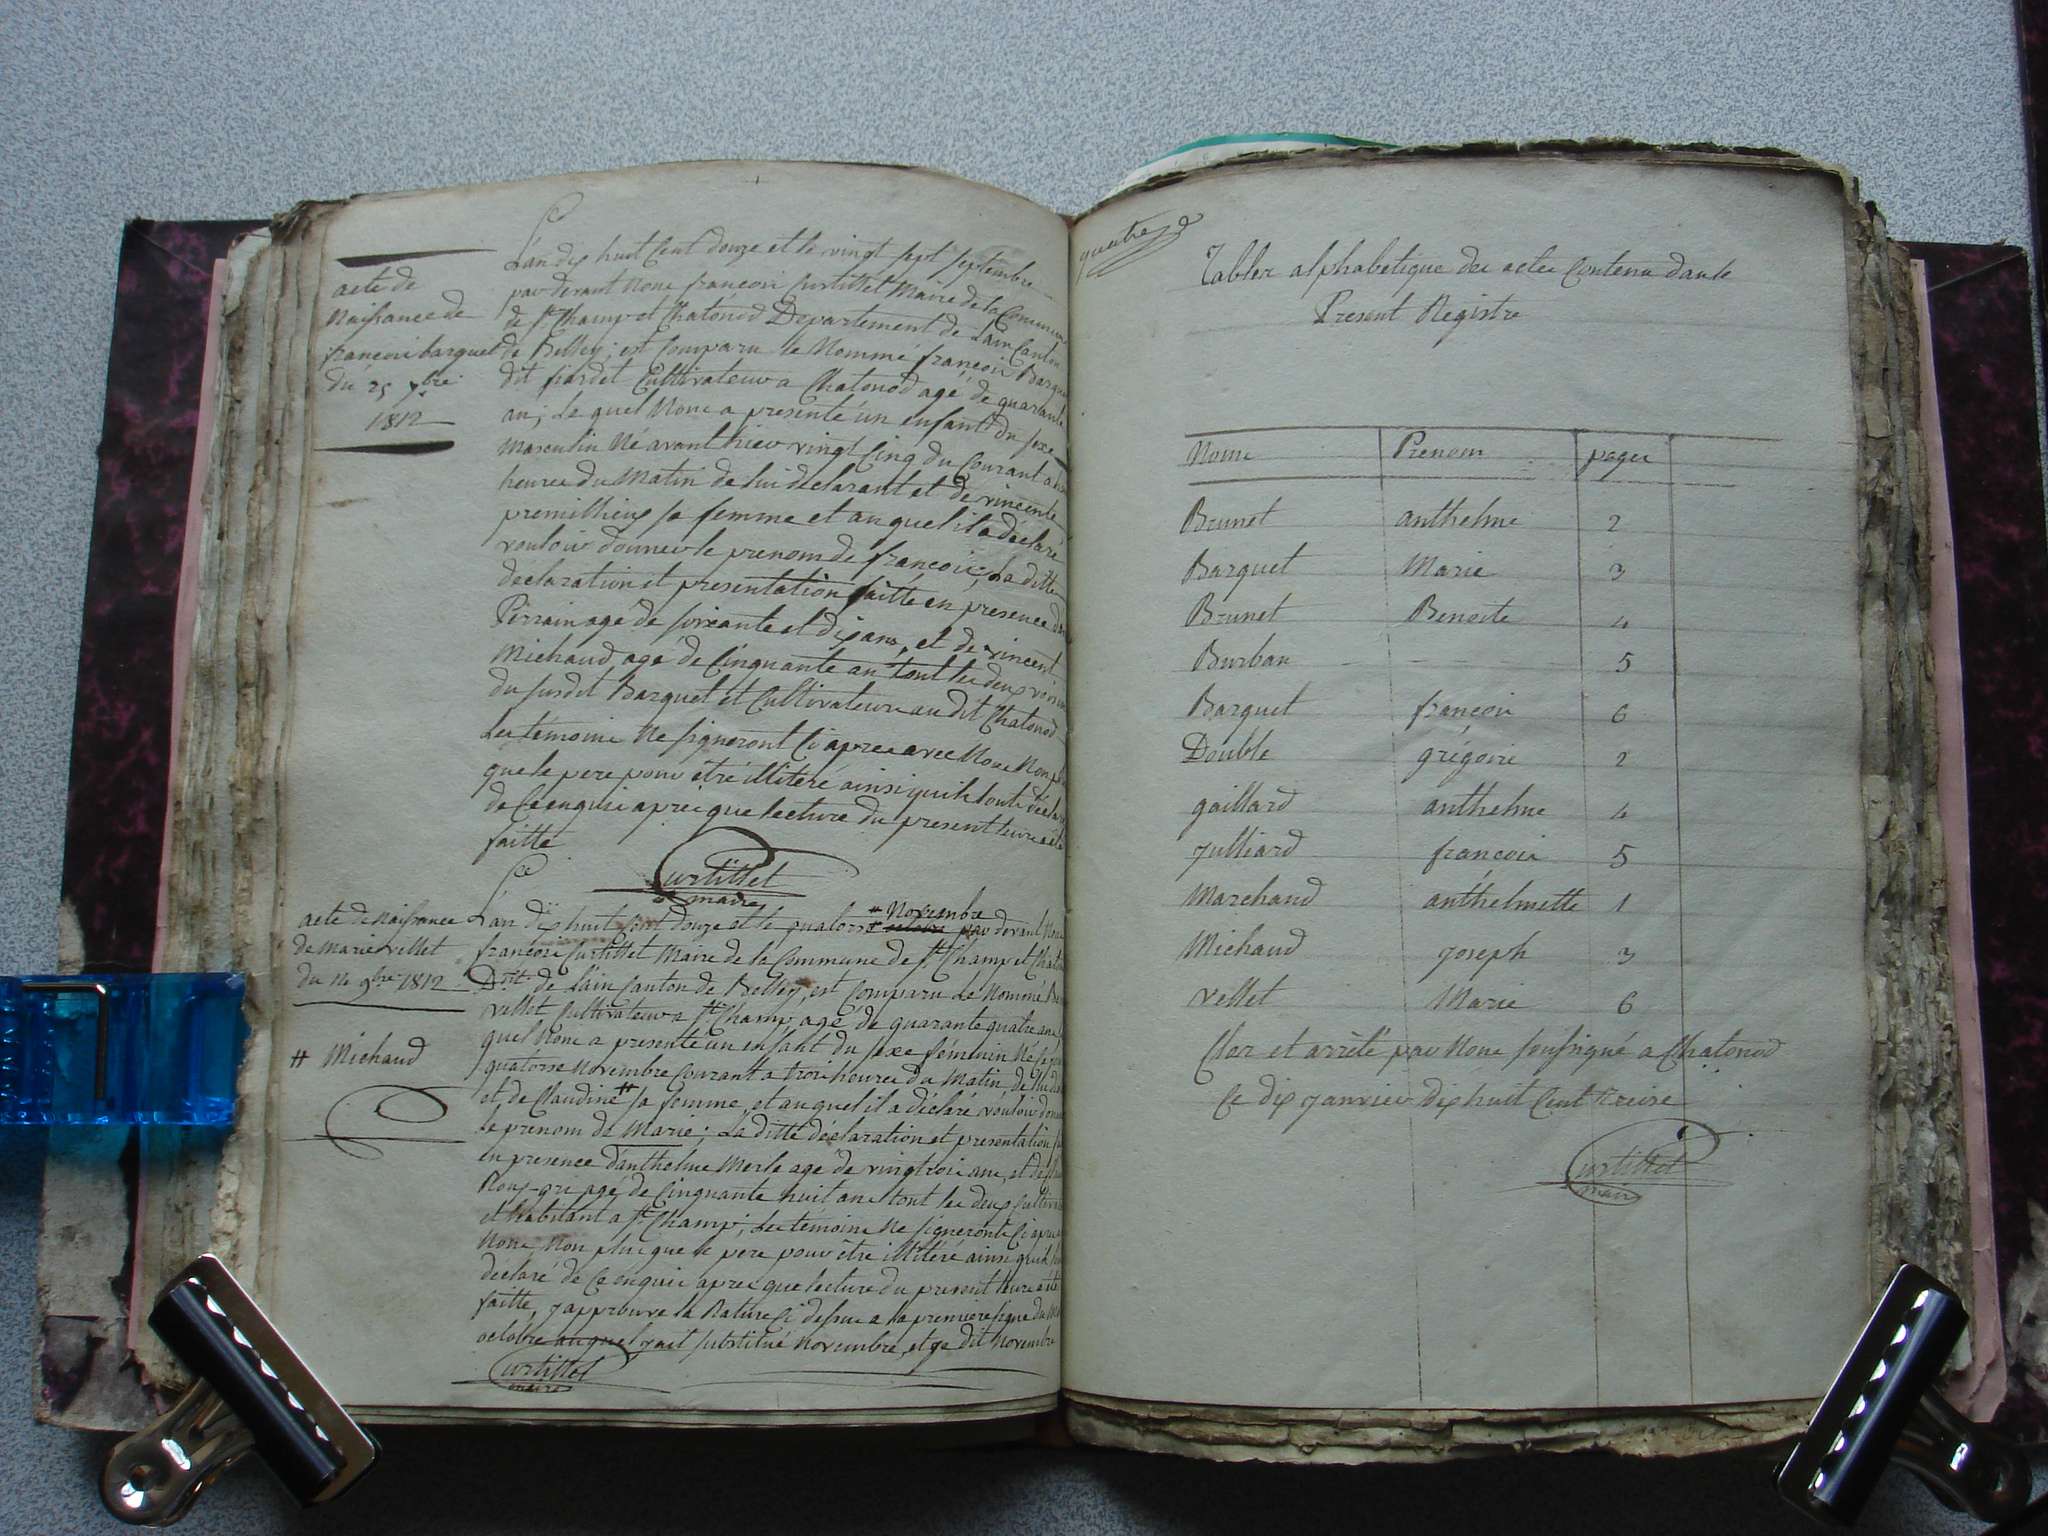 acte de
Naissance de
francois barquet
du 25 7bre
1812
L'an dix huit Cent douze et le vingt sept septembre
par devant Nous francois Curtillet Maire de la Commune
de St Champ et Chatonod Departement de Lain Canton
de Belley; est Comparu le Nommé francois Barquet
dit fardet Cultivateur a Chatonod agé de quarante
ans; Le quel Nous a presenté un enfant du sexe
Masculin Né avant hier vingt Cinq du Courant a
heures du Matin de lui declarant et de vincente
premillieux sa femme et au quel il a déclaré
vouloir donner le prenom de francois; La ditte
déclaration et presentation faitte en presence
Perrain agé de soixante et dix ans, et de vincent
Michaud agé de Cinquante ans tout les deux voisins
du susdit Barquet et Cultivateurs au dit Chatonod
Les témoins Ne signeront Ci apres avec Nous Non plus
que le pere pour être illitéré ainsi quils lont déclaré
de Ce enquis après que lecture du present leure a été
faitte
Curtillet
maire
acte de Naissance
de marie vellet
du 14 9bre 1812
# Michaud
# Novembre
L'an dix huit Cent douze et le quatorse octobre par devant Nous
francois Curtillet Maire de la Commune de St Champ et
Dptt de Lain Canton de Belley, est Comparu Le Nommé
vellet Cultivateur a St Champ agé de quarante quatre ans,
quel Nous a presenté un enfant du sexe féminin Né
quatorse Novembre Courant a trois heures du Matin de lui
et de Claudine # sa femme, et au quel il a déclaré vouloir donner
le prenom de Marie; La ditte déclaration et presentation
en presence danthelme Merle agé de vingt trois ans, et de
agé de Cinquante huit ans tout les deux
et habitant a St Champ; Les témoins Ne signeront Ci apres
Nous Non plus que le pere pour être illitéré ainsi quils
déclaré de Ce enquis apres que lecture du present leure a été
faitte, j'approuve la Rature Ci dessus a la premiere ligne du
octobre au quel jait substitué Novembre, et je dit Novembre
Curtillet
maire
quatre
Tables alphabetique des actes Contenu dans le
Present Registre
Noms Prenoms pages
Brunet anthelme 2
Barquet Marie 3
Brunet Benoite 4
Burban 5
Barquet francois 6
Double grégoire 2
gaillard anthelme 4
Julliard francois 5
Marchand anthelmette 1
Michaud Joseph 3
vellet Marie 6
Clos et arrêté par Nous soussigné a Chatonod
Ce dix Janvier dix huit Cent treise
Curtillet
maire